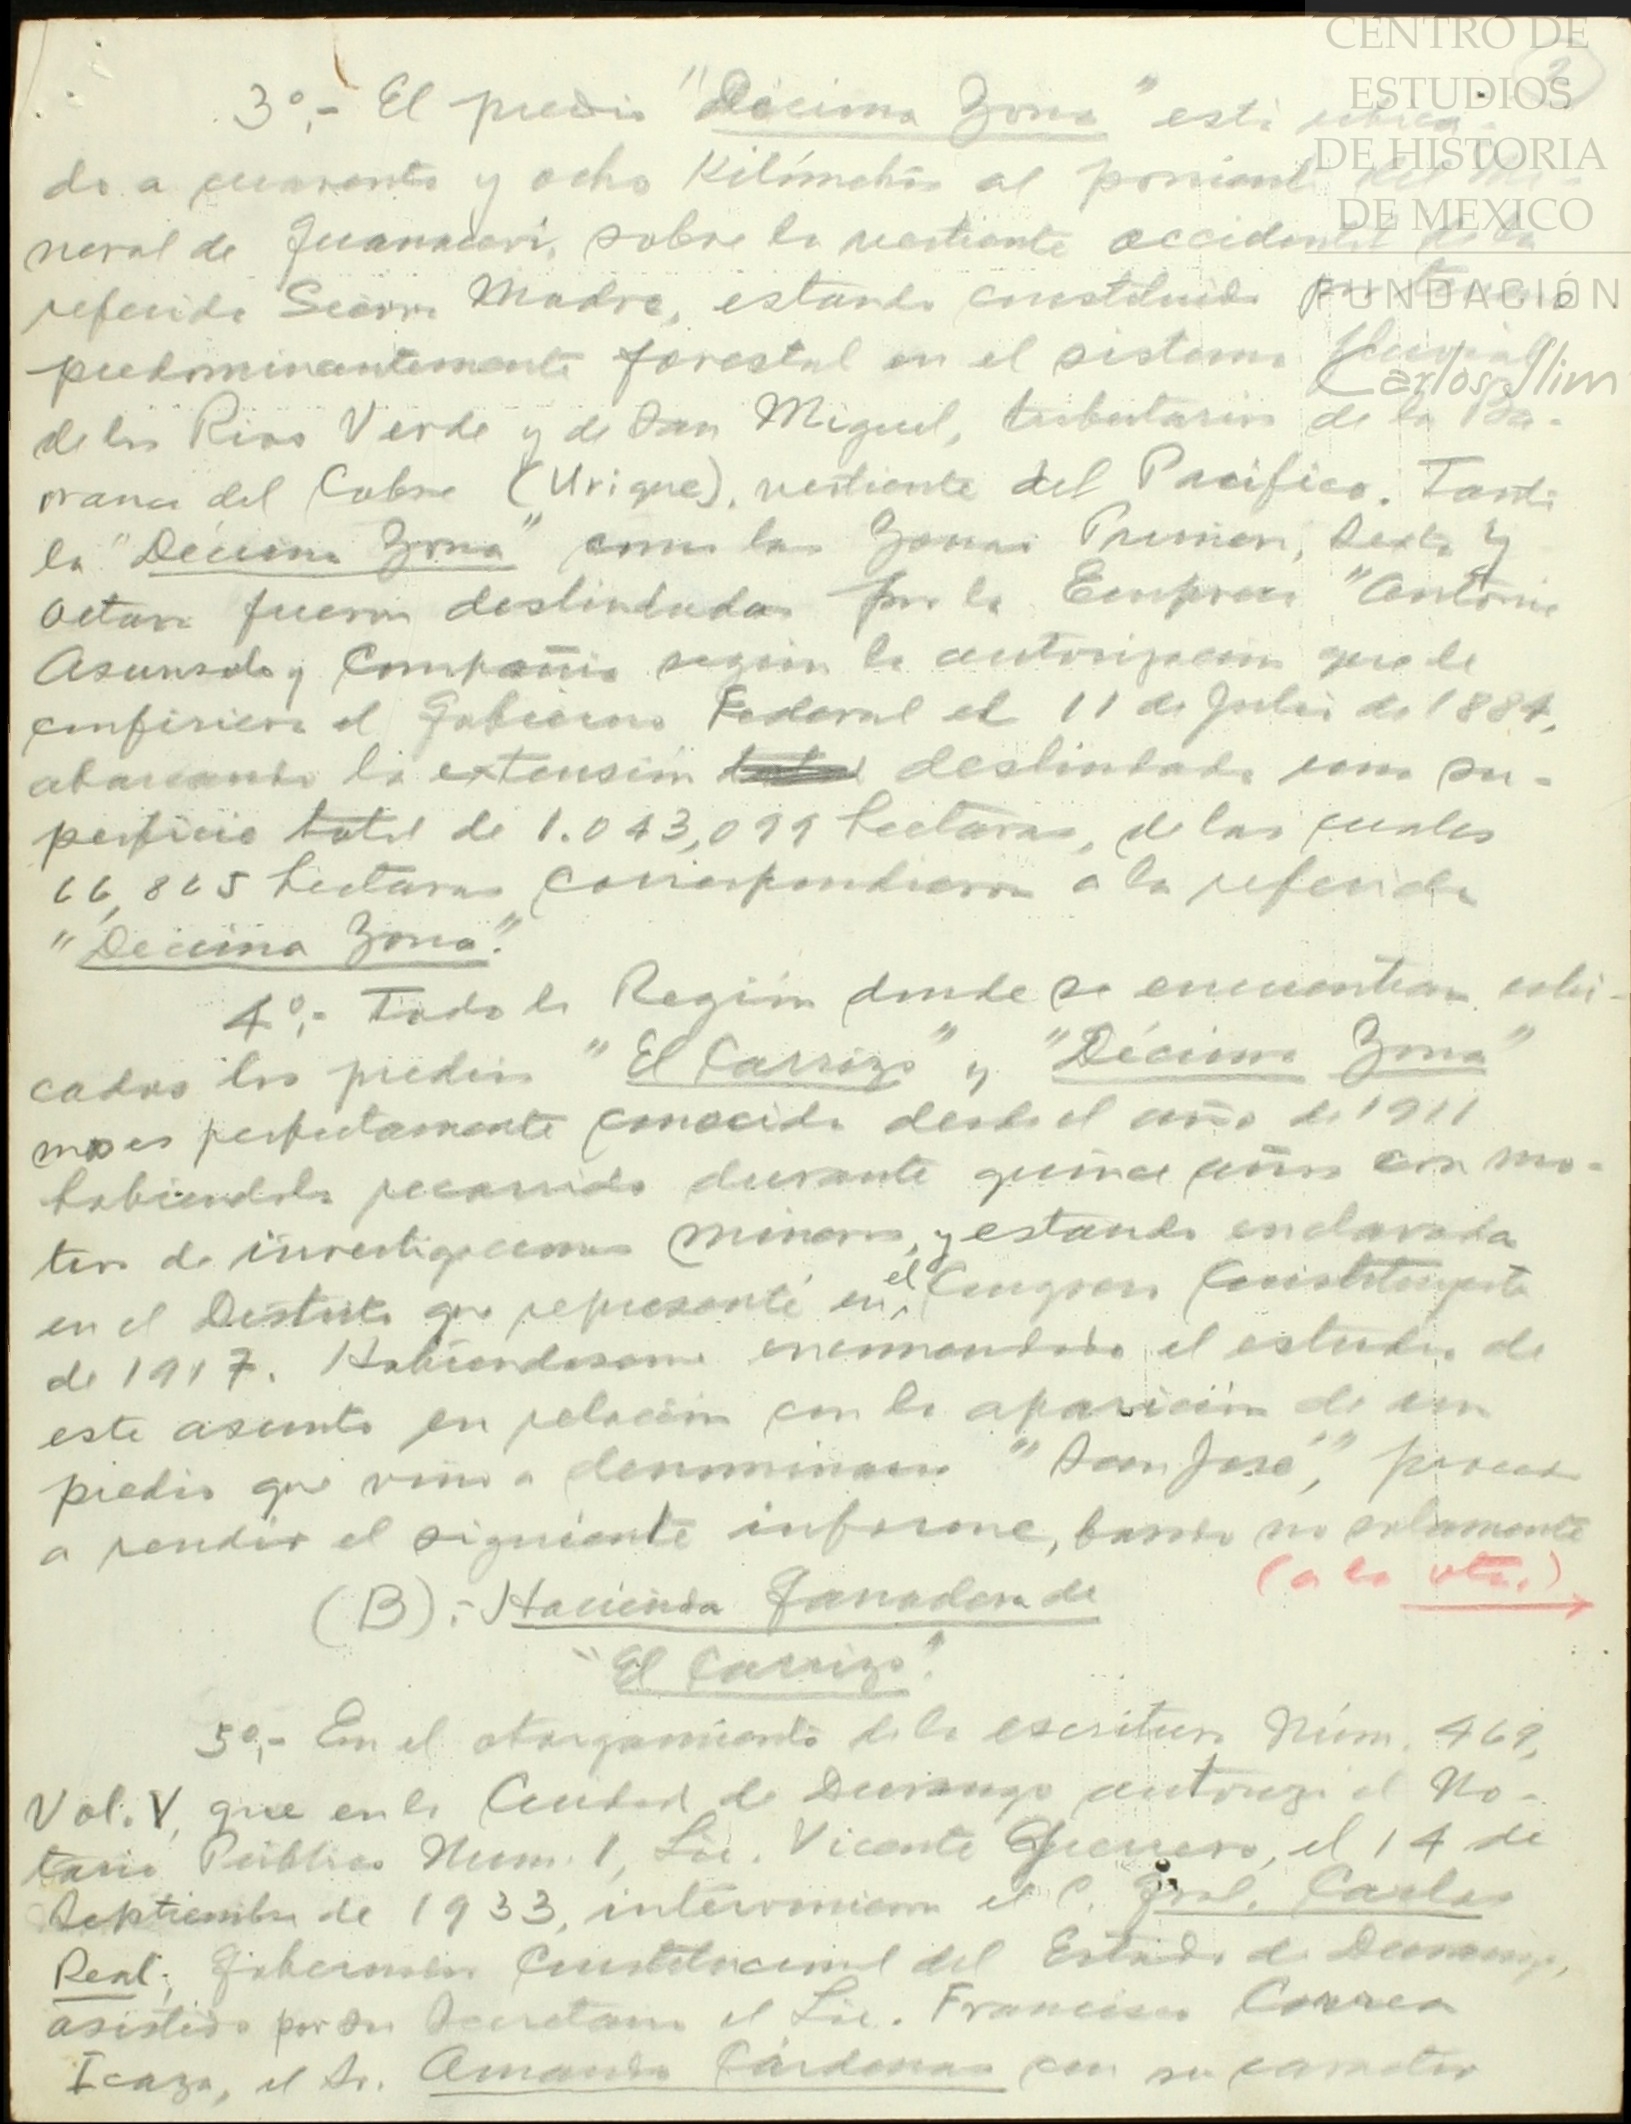 CENTRO DE
ESTUDIOS
DE HISTORIA
DE MEXICO
FUNDACIÓN
Carlos Slim
2
3°,- El predio "Décima Zona" está ubica-
do a cuarenta y ocho Kilómetros al poniente del Mi-
neral de Guanaceví, sobre la vertiente occidental de la
referida Sierra Madre, estando constituido por terreno
predominantemente forestal en el sistema fluvial
de los Rios Verde y de San Miguel, tributarios de la Ba-
rranca del Cobre (Urique), vertiente del Pacífico. Tanto
la "Décima Zona" como las Zonas Primera, Sexta y
Octava fueron deslindadas por la Empresa "Antonio
Asunsolo y Compañia según la autorización que le
confiriera el Gobierno Federal el 11 de Julio de 1884,
abarcando la extensión deslindada una su-
perficie total de 1.043,099 hectáreas, de las cuales
66,865 hectáreas correspondieron a la referida
"Décima Zona".
4°,- Toda la Región donde se encuentran ubi-
cados los predios "El Carrizo" y "Décima Zona"
me es perfectamente conocida desde el año de 1911
habiéndola recorrido durante quince años con mo-
tivo de investigaciones mineras, y estando enclavada
en el Distrito que representé en el Congreso Constituyente
de 1917. Habiendoseme encomendado el estudio de
este asunto en relación con la aparición de un
predio que vino a denominarse "San José", procedo
a rendir el siguiente informe, basado no solamente
(a la vta.)
(B).- Hacienda Ganadera de
"El Carrizo".
5°,- En el otorgamiento de la escritura Núm. 469,
Vol. V, que en la Ciudad de Durango autorizó el No-
tario Público Num. 1, Lic. Vicente Guerrero, el 14 de
Septiembre de 1933, intervinieron el C. Gral. Carlos
Real, Gobernador Constitucional del Estado de Durango,
asistido por su Secretario el Lic. Francisco Correa
Icaza, el Sr. Amando Cárdenas con su caracter